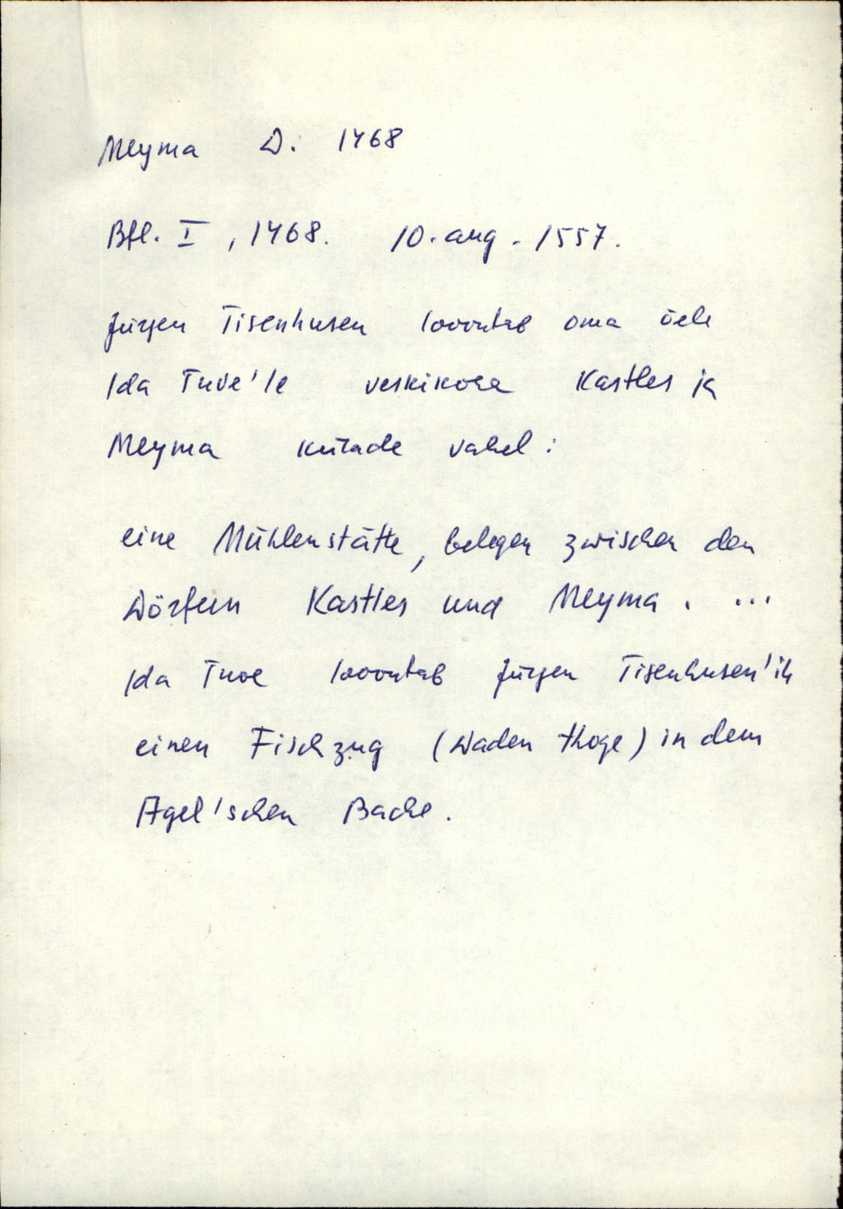 Meyma D. 1468
Bfl. I, 1468. 10. aug. 1557.
Jürgen Tisenhusen loovutab oma õele
Ida Tuve'le veskikoha Kastles ja
Meyma külade vahel:
eine Mühlenstätte, belegen zwischen den
Dörfern Kastles und Meyma. ...
Ida Tuve loovutab Jürgen Tisenhusen'ile
einen Fischzug (Waden thoge) in dem
Agel'schen Bache.